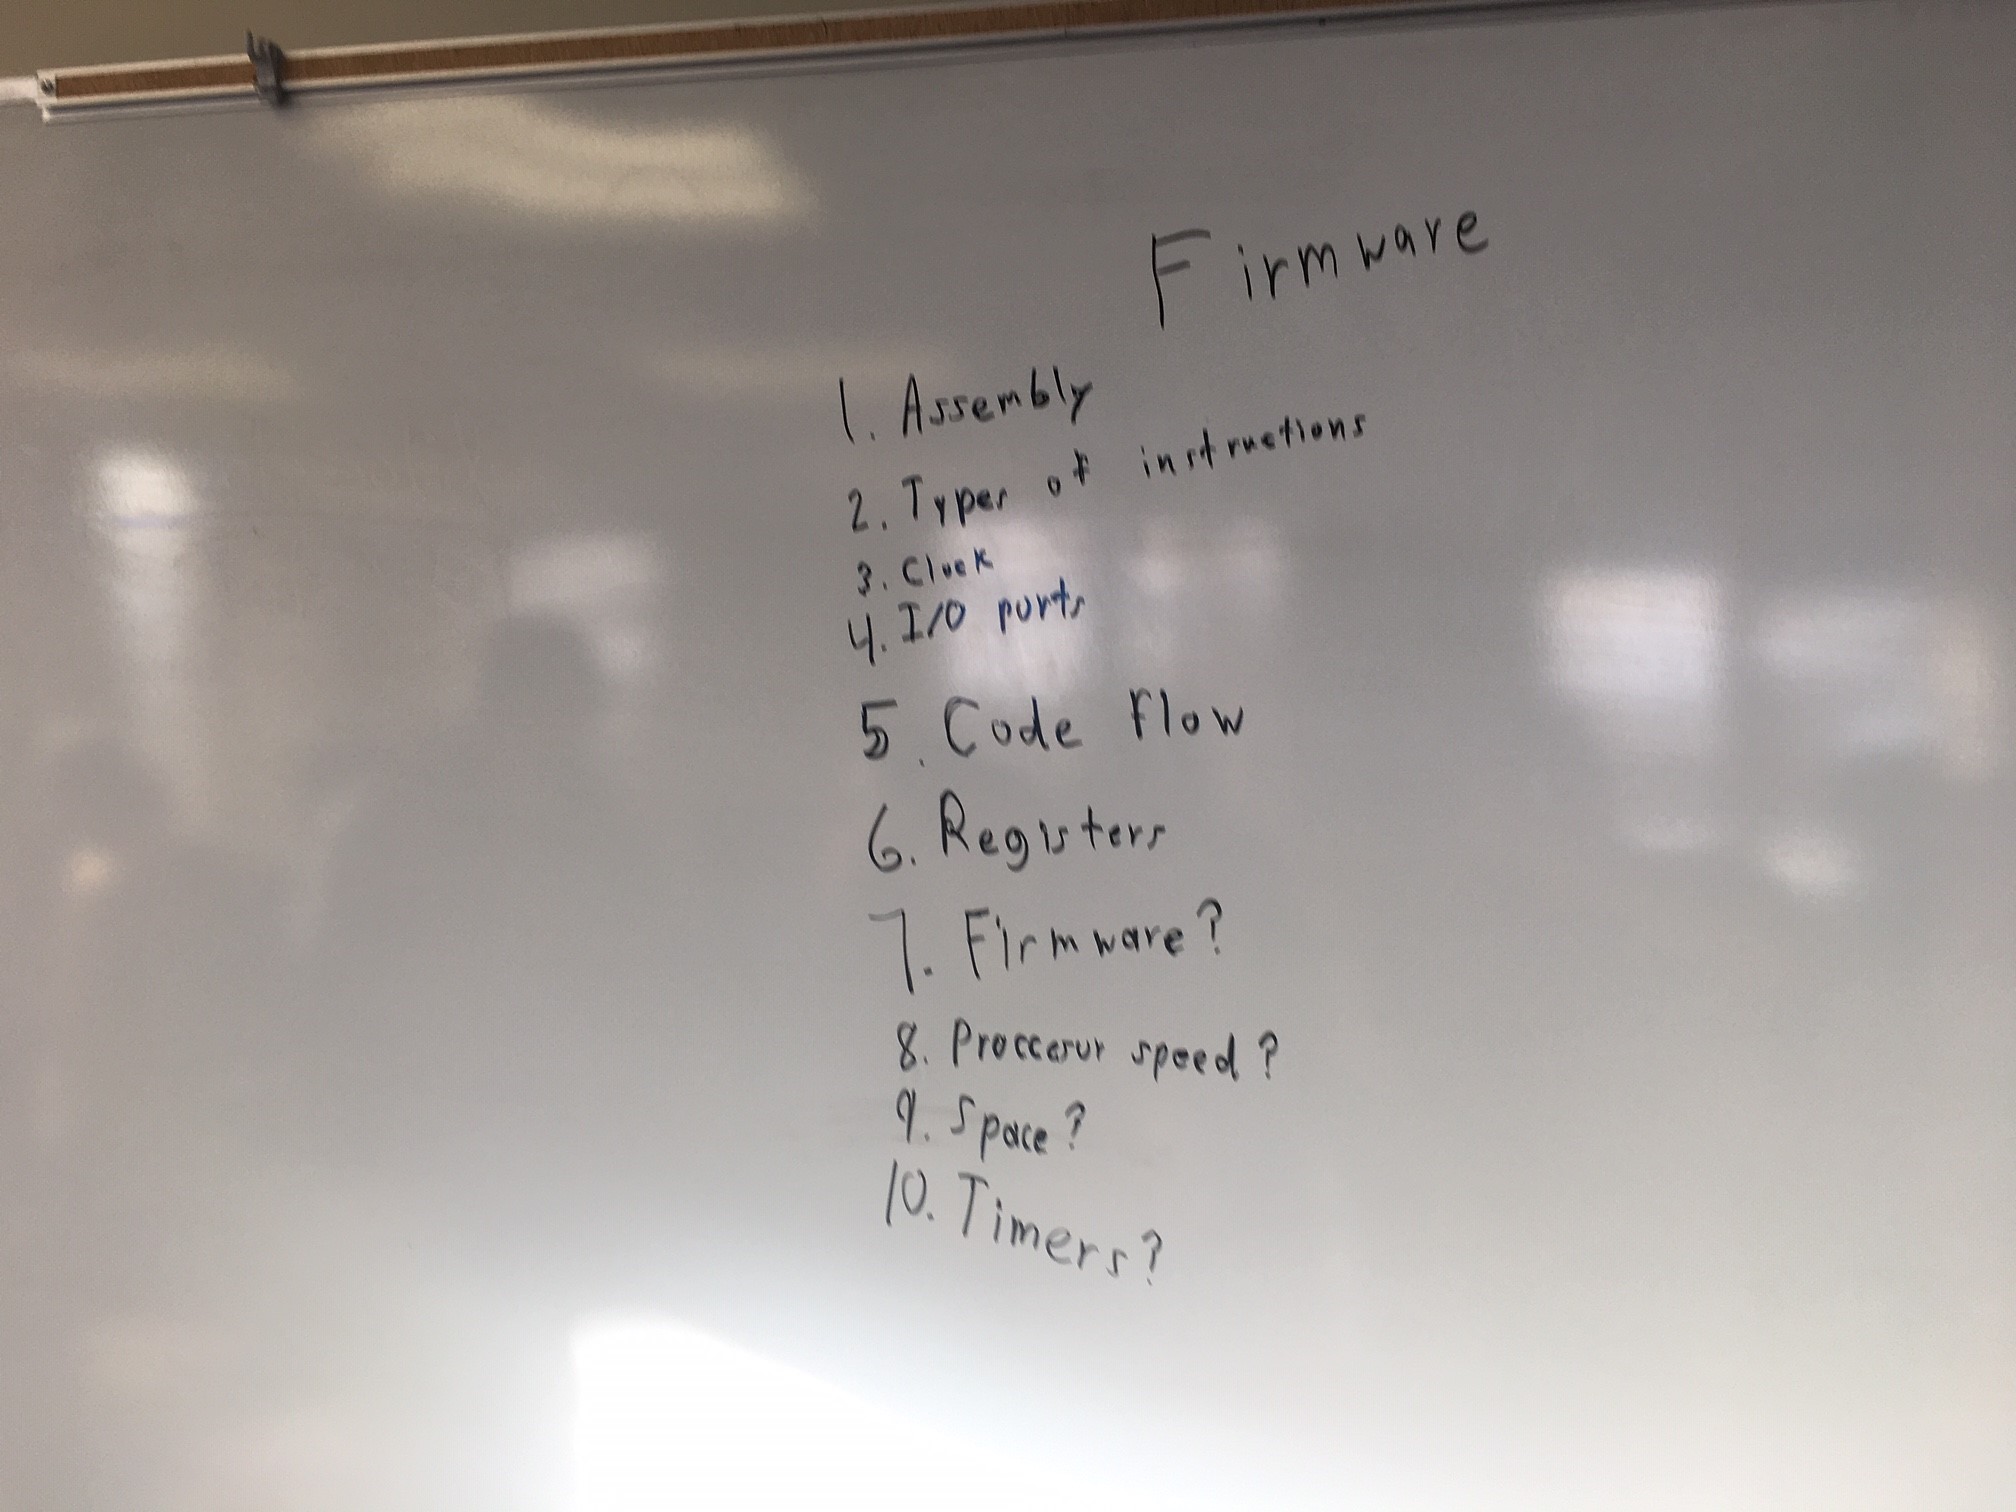 Firmware
1. Assembly
2. Types of instructions
3. Clock
4. I/O ports
5. Code flow
6. Registers
7. Firmware?
8. Proccesor speed?
9. Space?
10. Timers?